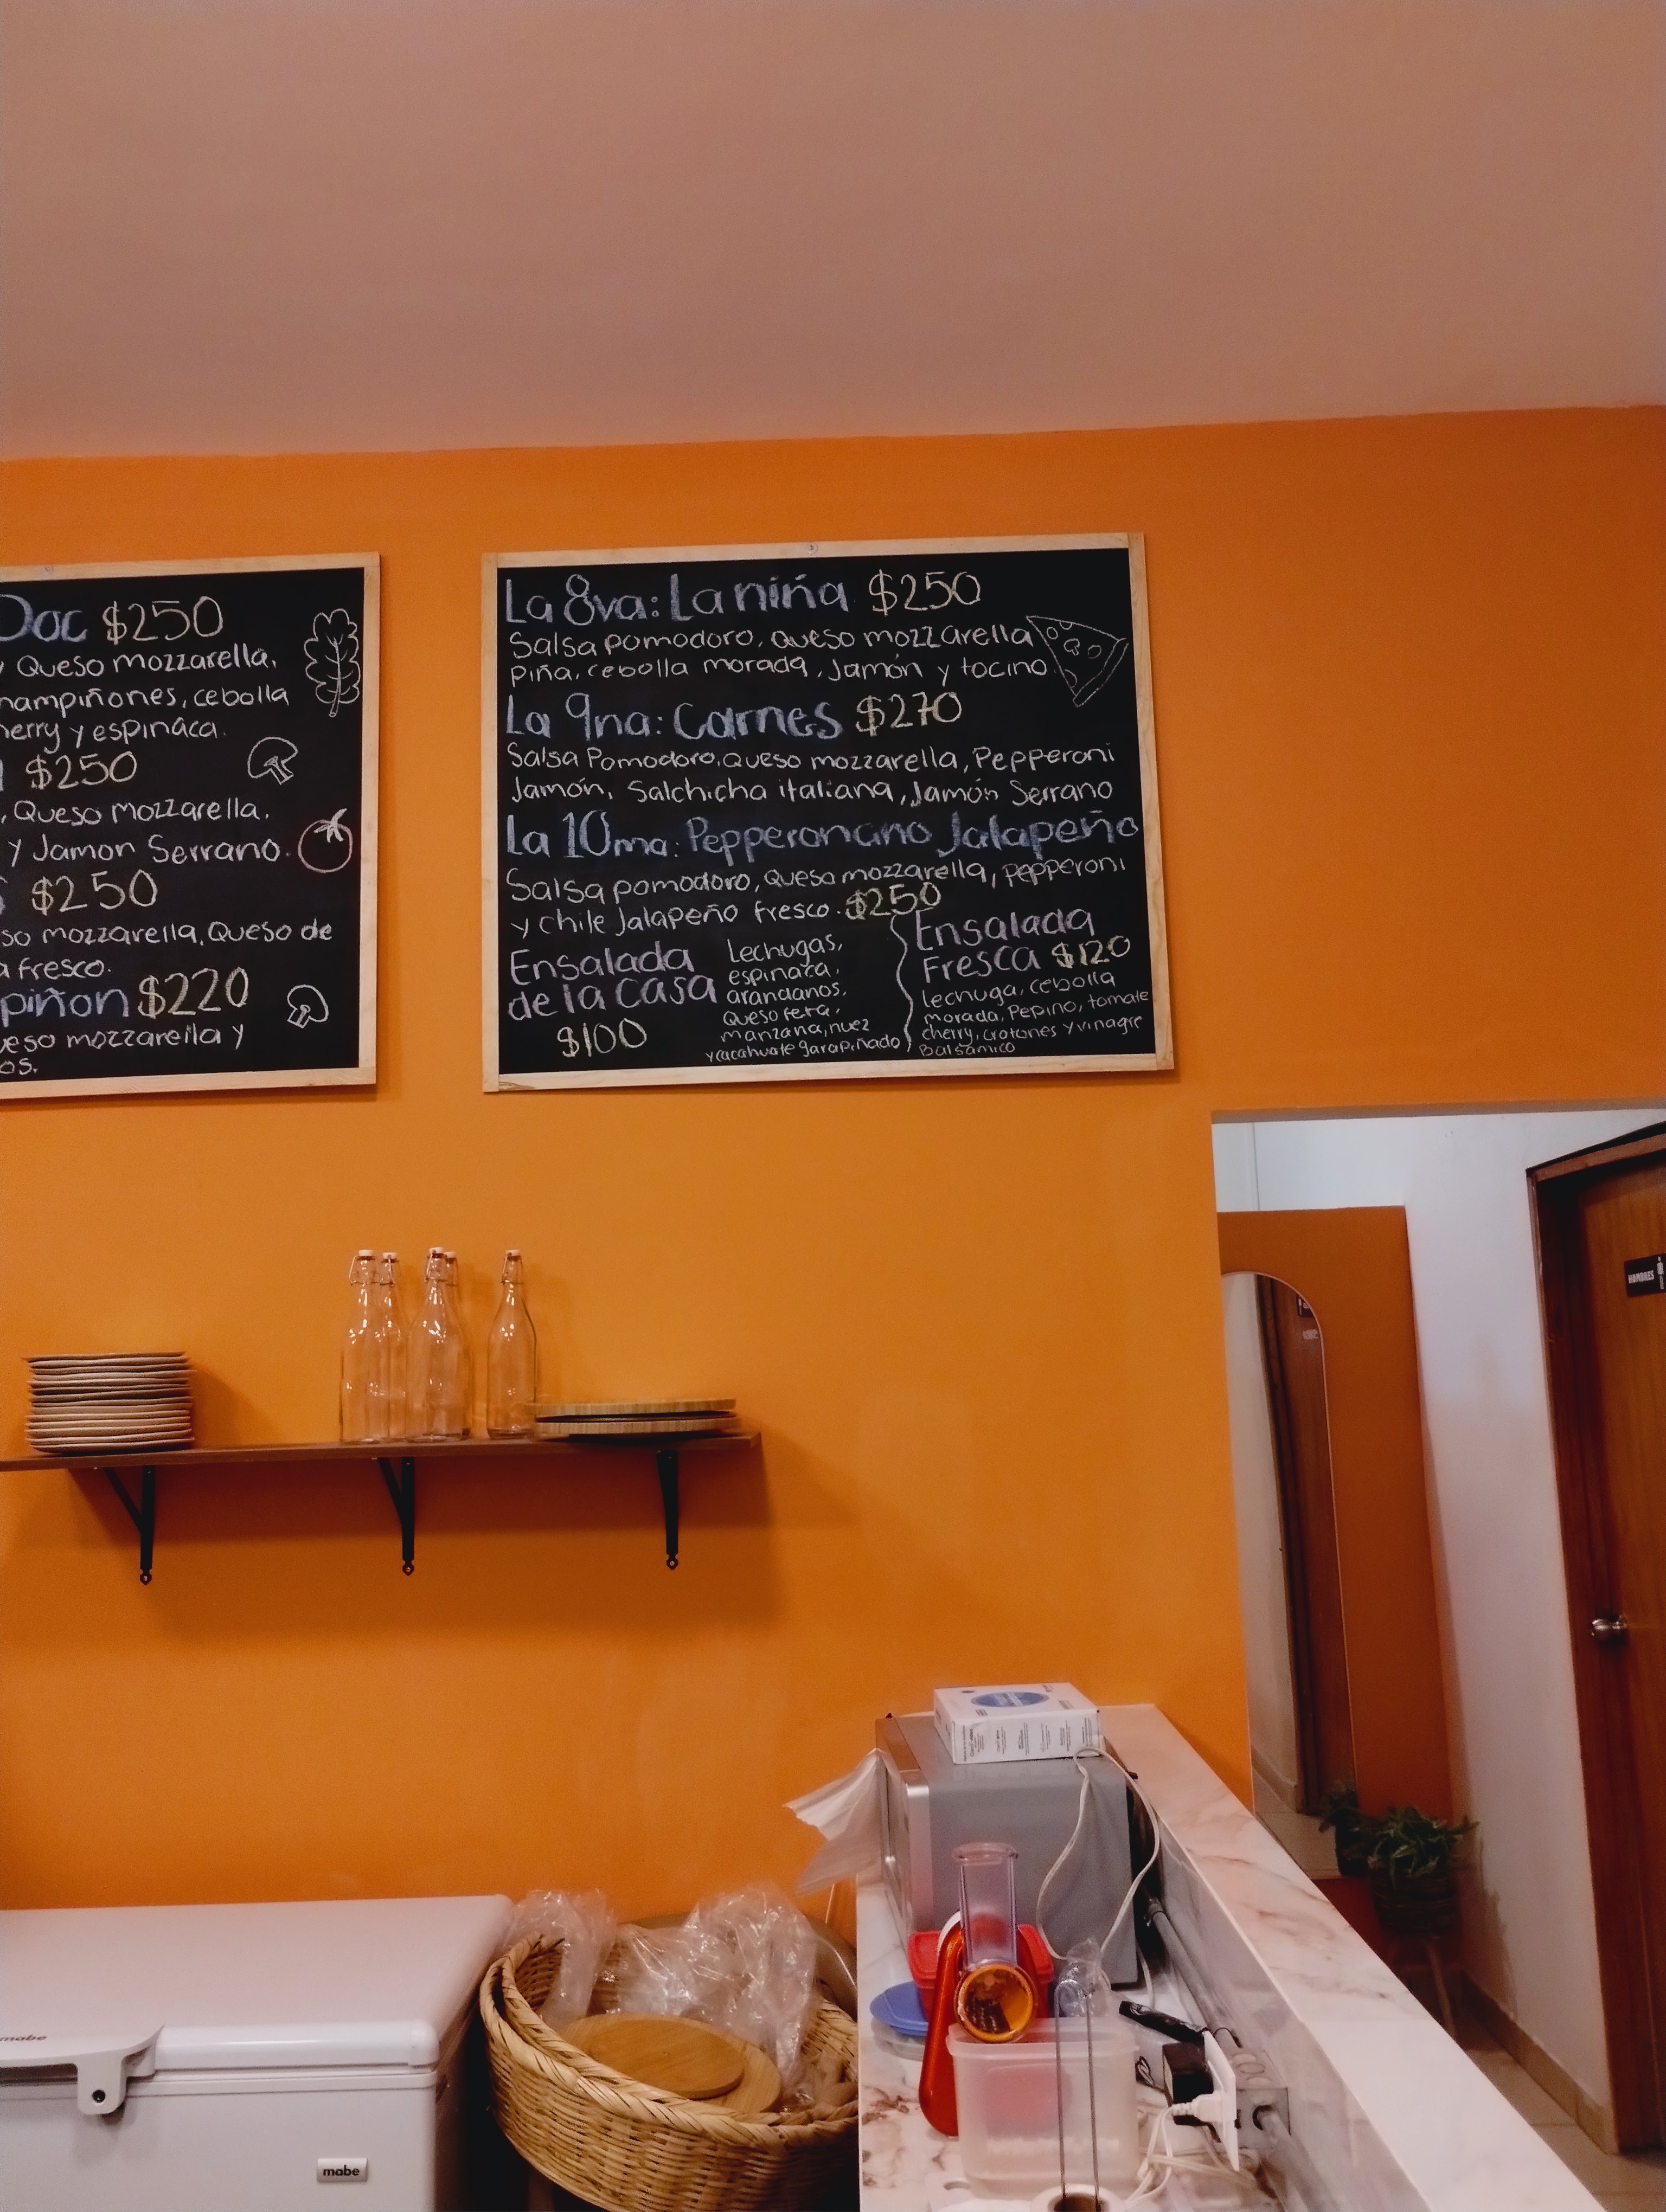 Doc $250
y Queso mozzarella,
hampiñones, cebolla
herry y espinaca.
$250
, Queso Mozzarella,
y Jamon Serrano.
$250
so mozzarella, Queso de
a fresco.
piñon $220
ueso mozzarella y
os.
La 8va: La niña $250
Salsa pomodoro, queso mozzarella
Piña, cebolla morada, Jamón y tocino
La 9na: Carnes $270
Salsa Pomodoro, Queso mozzarella, Pepperoni
Jamón, Salchicha italiana, Jamón Serrano
La 10ma: Pepperonciano Jalapeño
Salsa pomodoro, queso mozzarella, pepperoni
y Chile Jalapeño fresco. $250
Ensalada
de la Casa
$100
Lechugas,
espinaca,
arandanos,
Queso feta,
manzana, nuez
y cacahuate garapiñado
Ensalada
Fresca $120
lechuga, cebolla
morada, Pepino, tomate
cherry, crotones y vinagre
Balsamico
HOMBRES
mabe
mabe